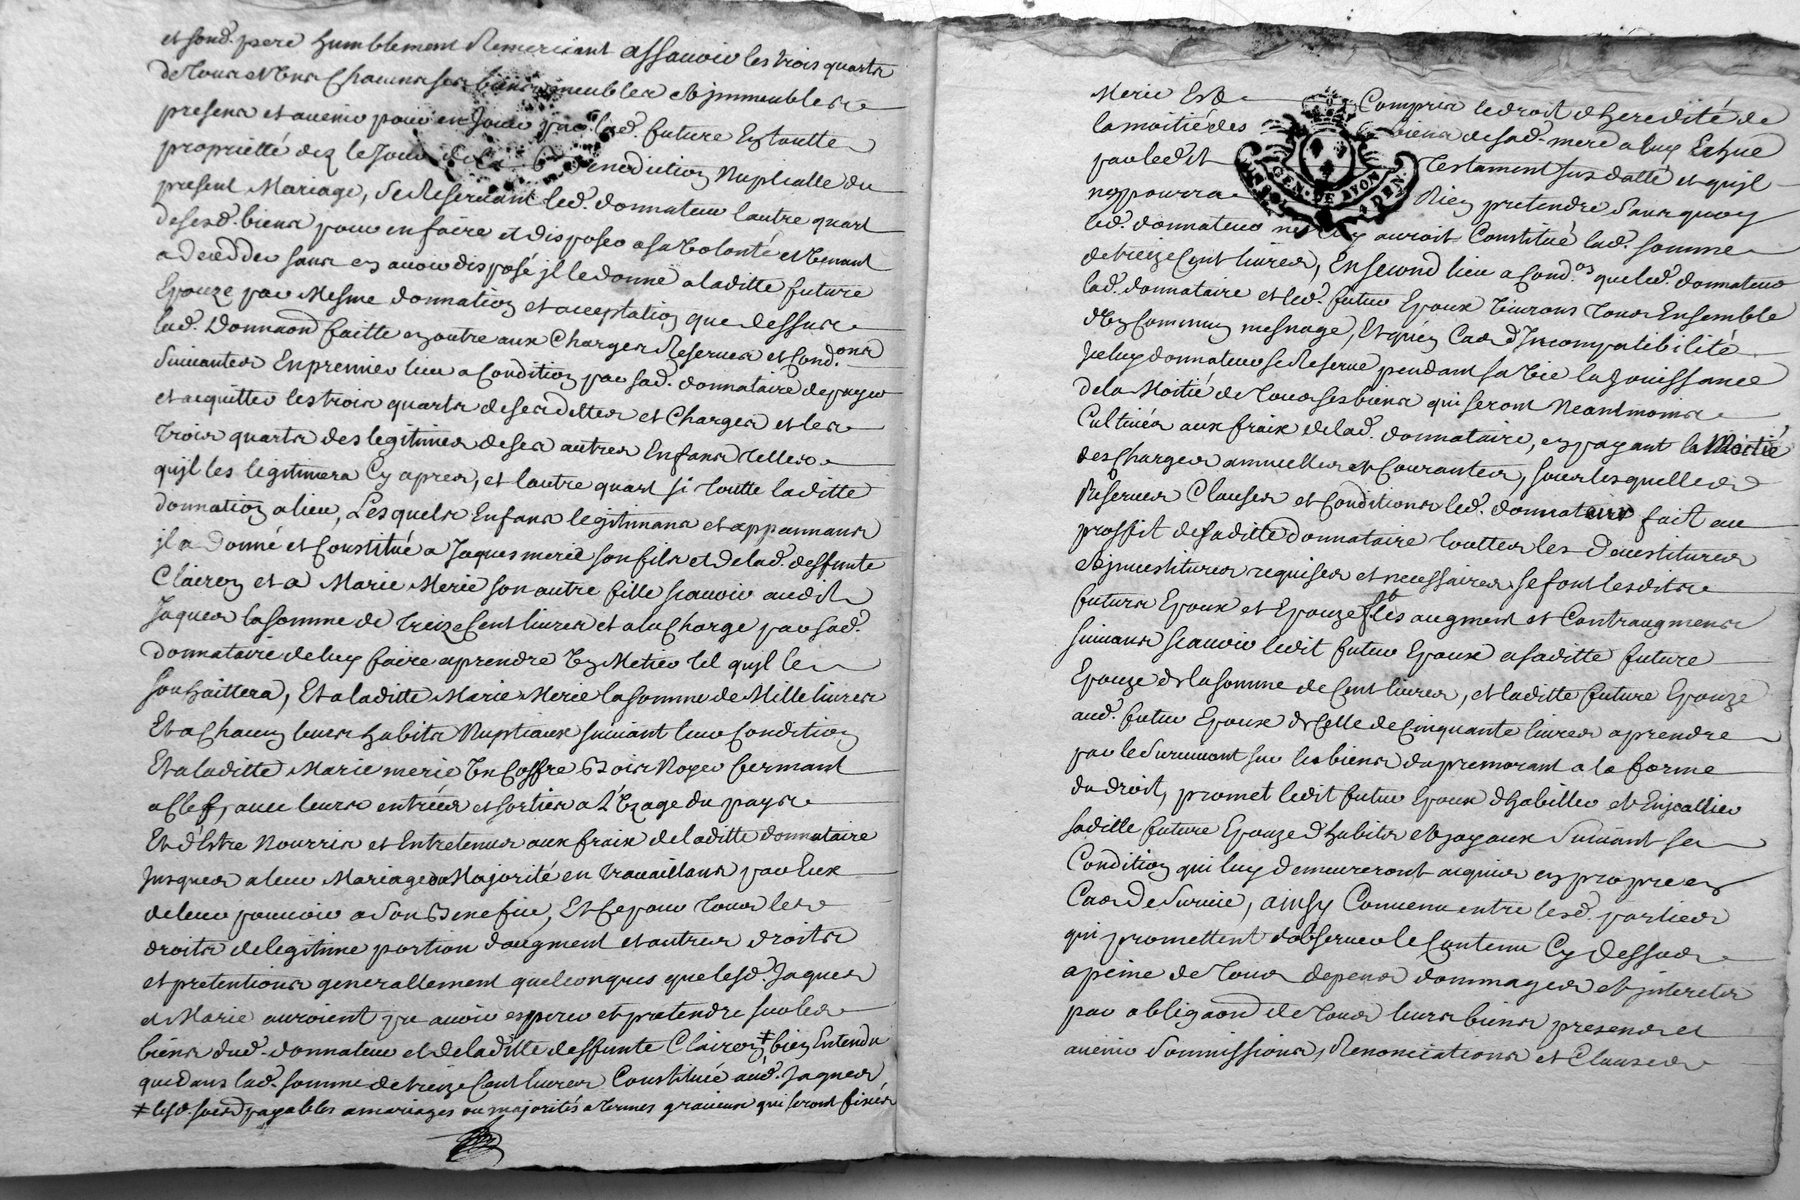 et sond. pere humblement Remerciant assavoir les trois quarts
de tous et uns Chacuns ses biens meubles et jmmeubles
presens et avenir pour en Jouir par lad. future En toutte
proprietté dez le Jour de la Benediction Nuptialle du
present Mariage, se Reservant led. donnateur lautre quart
desesd. biens pour en faire et disposer a sa Volonté et Venant
a decedder sans en avoir disposé jl le donne a laditte future
Epouze par Mesme donnation et acceptation que dessus
lad. Donnaon faitte en outre aux Charges Reserves et Cond.ons
Suivantes En premier lieu a Condition par sad. donnataire de payer
et acquitter les trois quarts de ses dettes et Charges et les
trois quarts des legitimes de ses autres Enfans telles
qujl les legitimera Cy apres, et lautre quart si toutte laditte
donnation a lieu, Lesquels Enfans legitimans et appannans
jl a donné et Constitué a Jaques merie son fils et de lad. deffunte
Clairon et a Marie Merie son autre fille scavoir audit
Jaques la somme de Treize Cent livres et a la Charge par sad.
donnataire de luy faire aprendre Un Metier tel qujl le
souhaittera, Et a laditte Marie Merie la somme de Mille livres
Et a Chacun leurs habits Nuptiaux suivant leur Condition
Et a laditte Marie merie Un Coffre Bois Noyer fermant
a Clef, avec leurs entrées et sorties a L'Uzage du pays
Et d'Estre Nourris et Entretenus aux fraix de laditte donnataire
Jusques a leur Mariage ou Majorité en travaillans par Eux
de leur pouvoir a Son Benefice, Et Ce pour tous les
droits de legitime portion daugment et autres droits
et pretentions generallement quelconques que lesd. Jaques
et Marie auroient pu avoir esperer et pretendre sur les
biens dud. donnateur et de laditte deffunte Clairon ‡ bien Entendu
que dans lad. somme de treize Cent livres Constituée aud. Jaques
‡ lesd. soes payables a mariages ou majorités a termes gracieux qui seront fixés
Merie Est Compris le droit d'heredité de
la moitié des biens de sad. mere a luy Echue
par ledit Testament sus datté et qujl
ne pourra Rien pretendre Sans quoy
led. donnateur ne luy auroit Constitué lad. somme
de treize Cent livres, En second lieu a Cond.on que led. donnateur
lad. donnataire et led. futur Epoux Vivrons tous Ensemble
d'Un Commun mesnage, Et qu'en Cas d'Jncompatibilité
Jceluy donnateur se Reserve pendant sa Vie la Jouissance
de la Moitié de tous ses biens qui seront Neantmoins
Cultivés aux fraix de lad. donnataire, en payant la Moitié
des Charges annuelles et Courantes, sous lesquelles
Reserves Clauses et Conditions led. donnateur fait au
proffit de saditte donnataire touttes les Devestitures
et jnvestitures requises et necessaires se font lesdits
futurs Epoux et Epouze les augment et Contraugment
suivans scavoir ledit futur Epoux a saditte future
Epouze de la somme de Cent livres, et laditte future Epouze
aud. futur Epoux de Celle de Cinquante livres a prendre
par le Survivant sur les biens du premorant a la forme
du droit, promet ledit futur Epoux d'habiller et Enjoallier
saditte future Epouze d'habits et joyaux Suivant sa
Condition qui luy demeureront acquis en propre en
Cas de Survie, ainsy Convenu entre lesd. parties
qui promettent d'observer le Contenu Cy Dessus
a peine de tous depens dommages et jnterets
par obligaon de tous leurs biens presens et
avenir Soumissions, Renonciations et Clauses
GEN. DE LYON